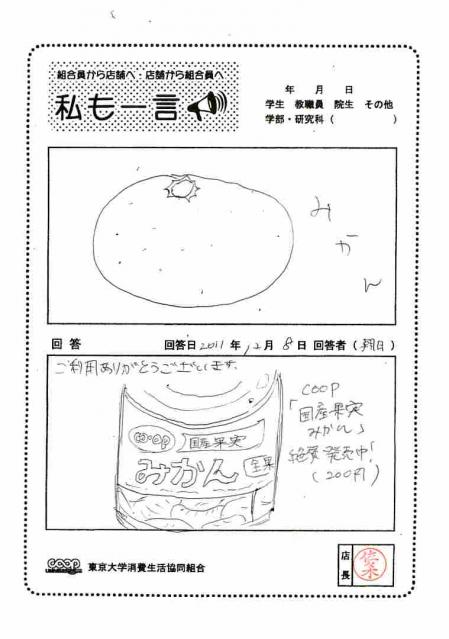 組合員から店舗へ・店舗から組合員へ
私も一言
年 月 日
学生 教職員 院生 その他
学部・研究科( )
みかん
回答 回答日 2011年 12月 8日 回答者()
ご利用ありがとうございます。
co・op
国産果実
みかん
全果
COOP
「国産果実
みかん」
絶賛発売中!
(200円)
coop 東京大学消費生活協同組合
店長
佐々木